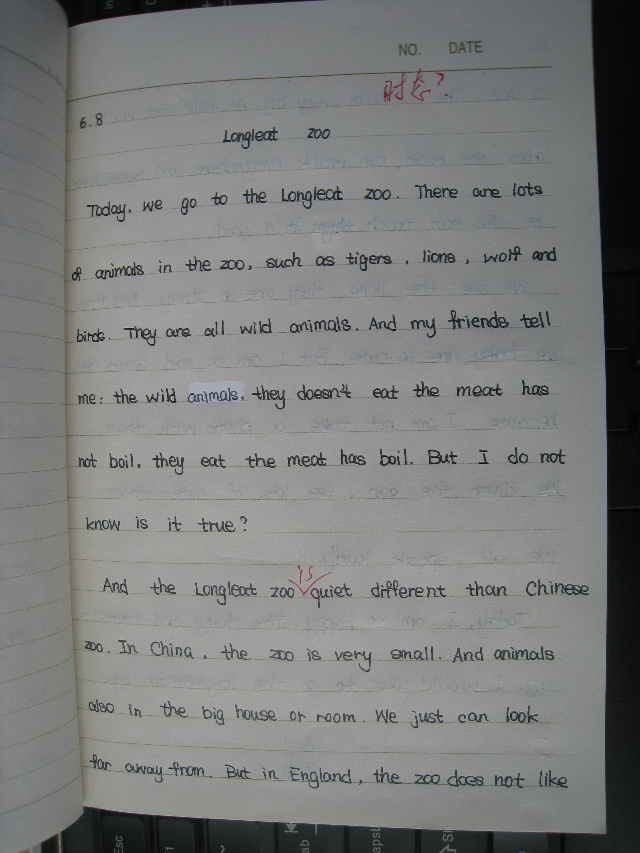 NO. DATE
时态?
6.8
Longleat zoo
Today, we go to the Longleat zoo. There are lots
of animals in the zoo, such as tigers, lions, wolf and
birds. They are all wild animals. And my friends tell
me: the wild animals, they doesn't eat the meat has
not boil, they eat the meat has boil. But I do not
know is it true?
is
And the Longleat zoo quiet different than Chinese
zoo. In China, the zoo is very small. And animals
also in the big house or room. We just can look
far away from. But in England, the zoo does not like